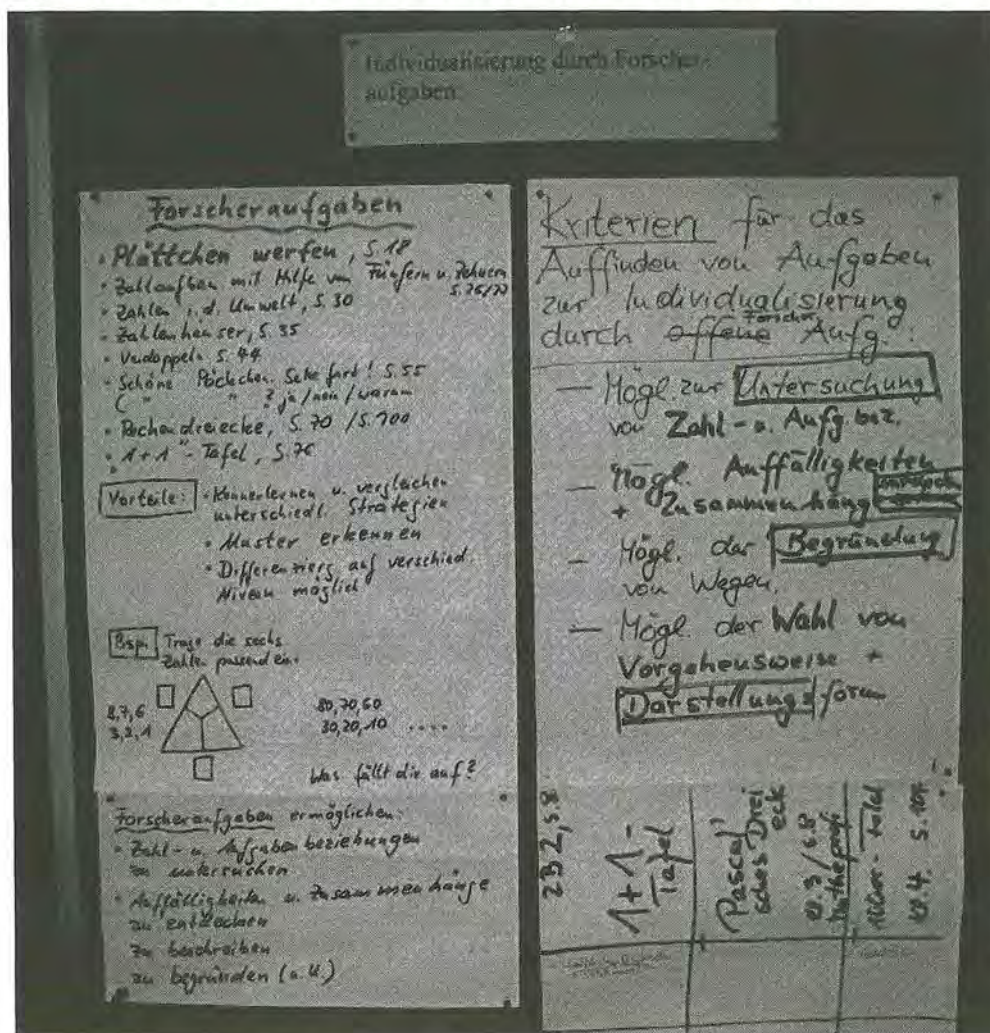 Individualisierung durch Forscher-
aufgaben
Forscheraufgaben
• Plättchen werfen, S. 18
• Zahlaufbau mit Hilfe von Fünfern u. Zehnern
S. 26/27
• Zahlen i. d. Umwelt, S. 30
• Zahlenhäuser, S. 35
• Verdoppeln S. 44
• Schöne Päckchen. Setze fort! S. 55
( " " ? ja/nein/warum
• Rechendreiecke, S. 70 / S. 100
• "1+1"-Tafel, S. 76
Vorteile: • Kennenlernen u. vergleichen
unterschiedl. Strategien
• Muster erkennen
• Differenzierg auf verschied.
Niveau möglich
Bsp. Trage die sechs
Zahlen passend ein.
8,7,6
3,2,1
80,70,60
30,20,10 ....
Was fällt dir auf?
Forscheraufgaben ermöglichen:
• Zahl- u. Aufgabenbeziehungen
zu untersuchen
• Auffälligkeiten u. Zusammenhänge
zu entdecken
zu beschreiben
zu begründen (s. u.)
Kriterien für das
Auffinden von Aufgaben
zur Individualisierung
durch offene Forscher Aufg.:
— Mögl. zur Untersuchung
von Zahl- u. Aufg bez.
— Mögl. Auffälligkeiten
+ Zusammenhäng
— Mögl. der Begründung
von Wegen.
— Mögl. der Wahl von
Vorgehensweise +
Darstellungsform
ZB 2, S. 8
1+1-
Tafel
Pascal'
sches Drei
eck
S. 8
Matheprofi
100er-Tafel
4. S. 104